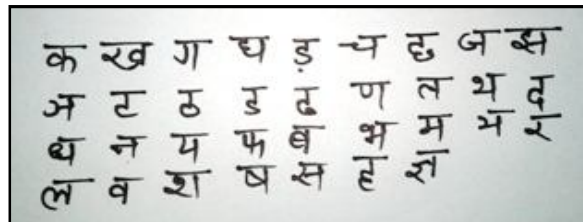 क ख ग घ ङ च छ ज झ
ञ ट ठ ड ढ ण त थ द
ध न प फ ब भ म य र
ल व श ष स ह ज्ञ